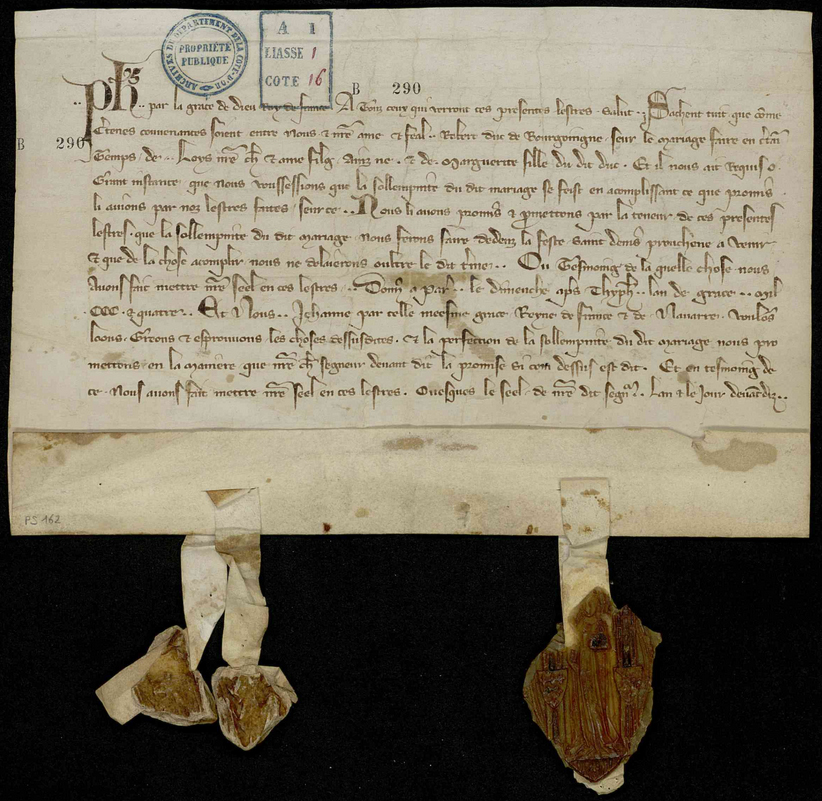 ARCHIVES DU DEPARTEMENT DE LA COTE-D'OR
PROPRIÉTÉ PUBLIQUE
A 1
LIASSE 1
COTE 16
B 290
B 290
Ph's par la grace de dieu Roy de france A Touz ceux qui verront ces presentes lestres Salut Sachent tuit que cõme
C'tenes couvenances soient entre Nous & n're ame & feal Robert duc de Bourgoingne seur le mariage faire en c'tain
Temps de Loys n're ch' & ame filz Ainz ne & de Marguerite fille du dit duc Et il nous ait requis o
Grant instance que nous voussessions que la sollempnite du dit mariage se feist en acomplissant ce que promis
li avions par noz lestres faites seur ce Nous li avons promis & p'mettons par la teneur de ces presentes
lestres que la sollempnite du dit mariage nous ferons faire dedenz la feste saint denis prochene a venir
& que de la chose acomplir nous ne delaierons oultre le dit t'me Ou Tesmoing de la quelle chose nous
Avons fait mettre n're seel en ces lestres Donn' a Par' le dimenche aps Thyph' lan de grace mil
CCC & quatre Et Nous Jehanne par celle meesme grace Reyne de france & de Navarre voulõs
loons Greons & esprouvons les choses dessusdites & la perfection de la sollempnite du dit mariage nous pro
mettons en la maniere que n're ch' segneur devant dit la promise si com dessus est dit Et en tesmoing de
ce Nous avons fait mettre n're seel en ces lestres Ovesques le seel de n're dit segn' Lan & le Jour devãt diz
PS 162